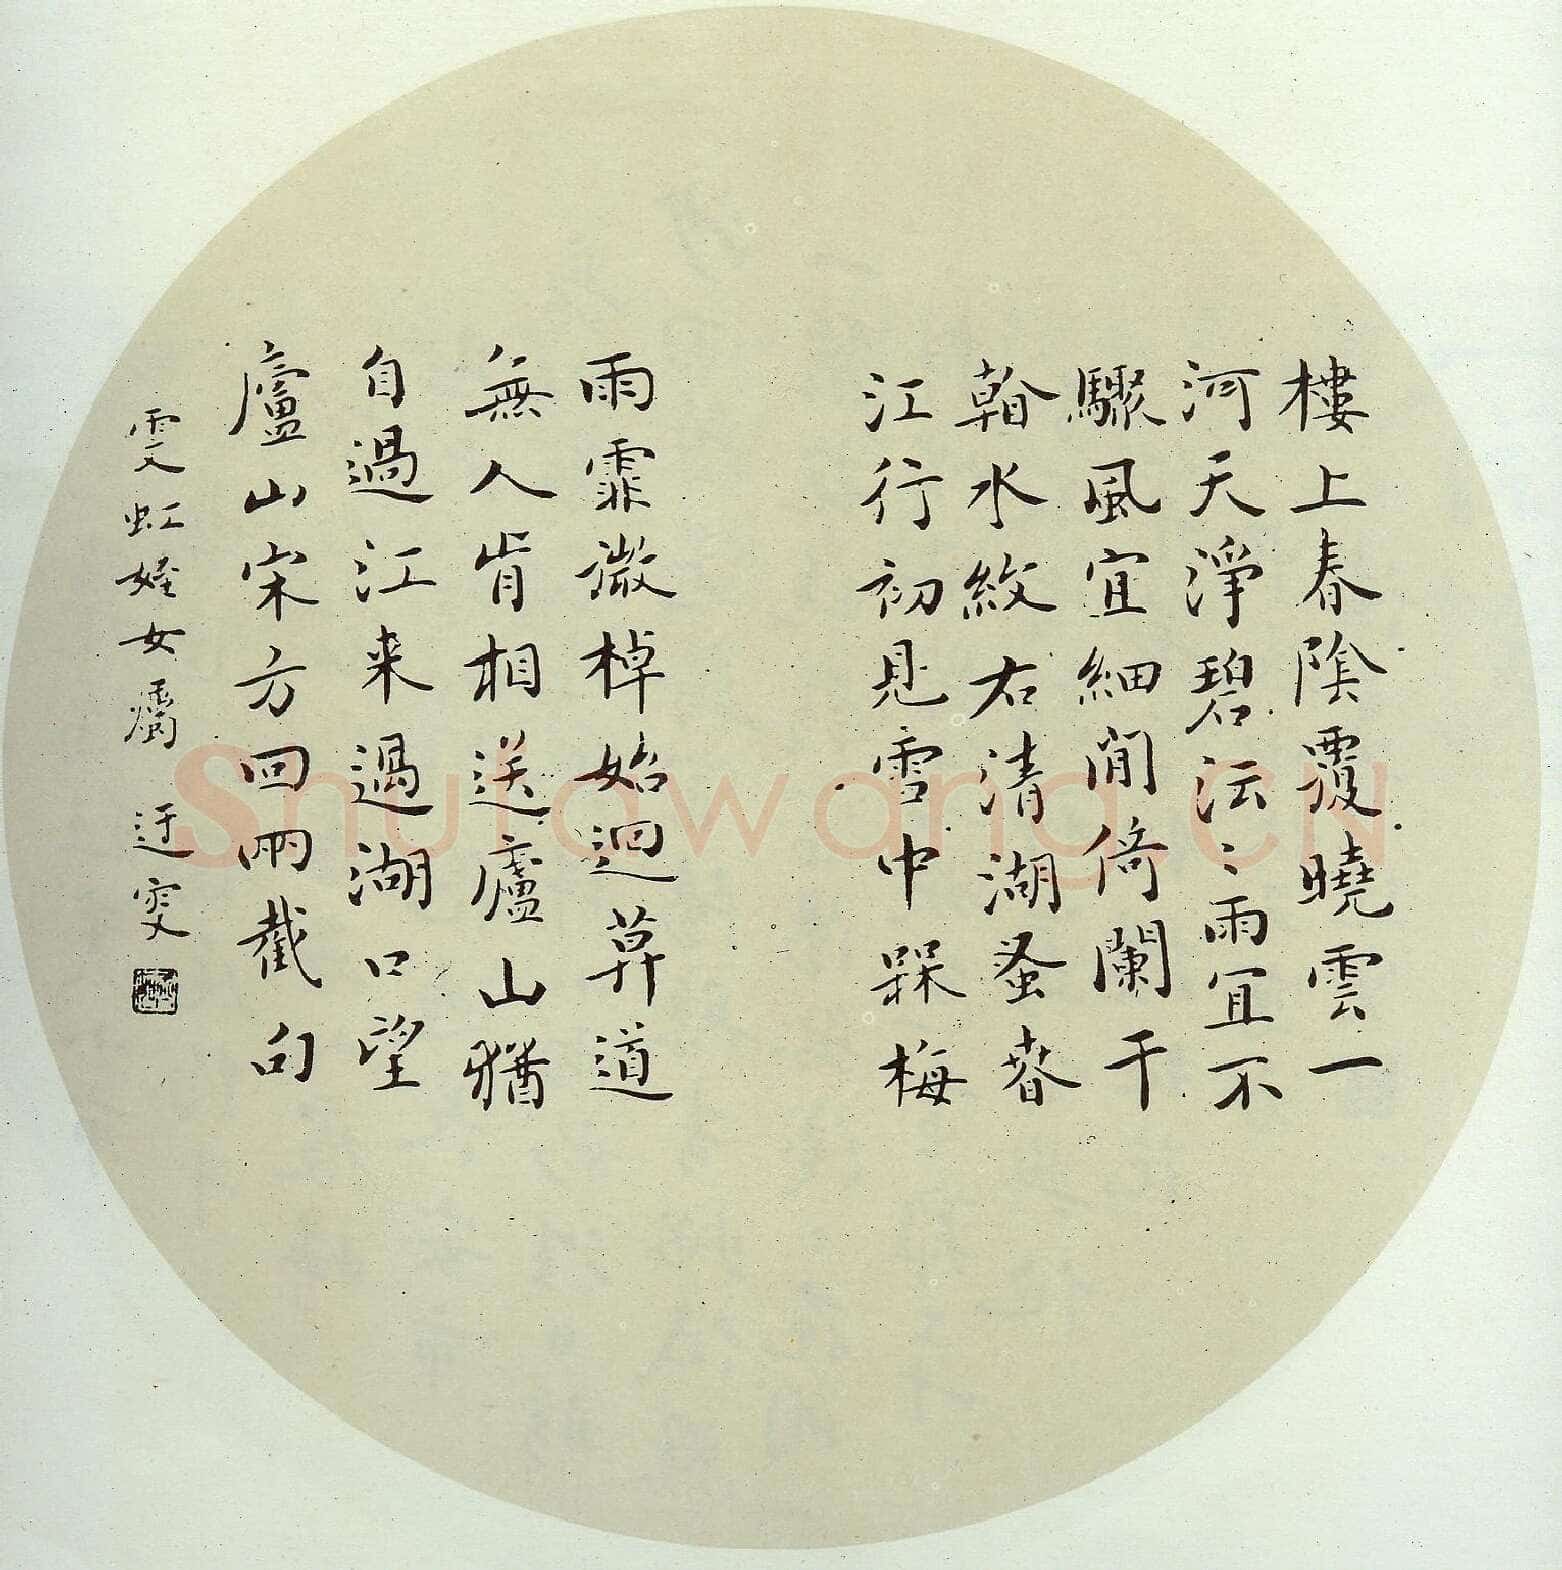 樓上春陰覆曉雲一
河天淨碧沄〻雨宜不
驟風宜細閒倚闌干
翰水紋右清湖蚤春
江行初見雪中槑梅
雨霏微棹始迴莫道
無人肯相送廬山猶
自過江来過湖口望
廬山宋方回兩截句
雯虹姪女屬 迂叟
Shufawang.CN